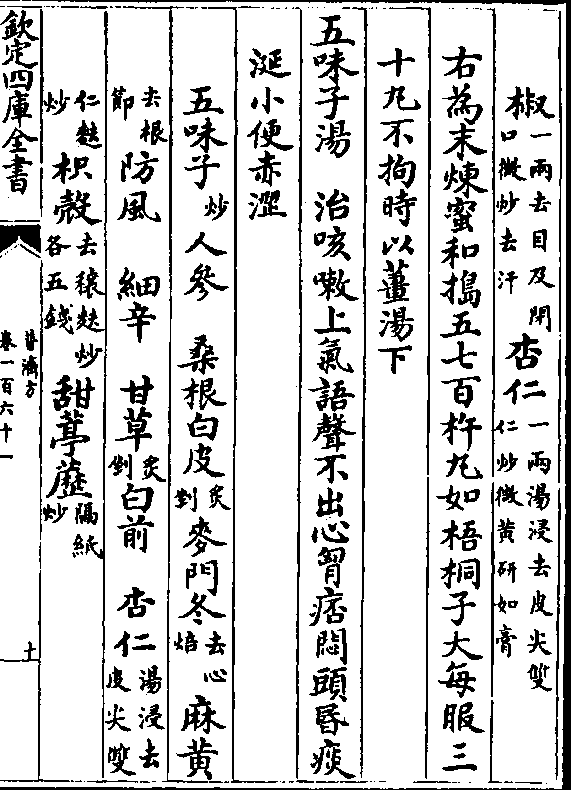 椒一兩去目及閉口微炒去汗杏仁一兩湯浸去皮尖雙仁炒微黄研如膏
右為末煉蜜和搗五七百杵丸如梧桐子大每服三
十丸不拘時以薑湯下
五味子湯 治咳嗽上氣語聲不出心胷痞悶頭昏痰
涎小便赤澀
五味子炒人參 桑根白皮炙剉麥門冬去心焙麻黄
去根節防風 細辛 甘草炙剉白前 杏仁湯浸去皮尖雙
仁麩炒枳殼去穰麩炒各五錢甜葶藶隔紙炒
欽定四庫全書
普濟方
卷一百六十一
土